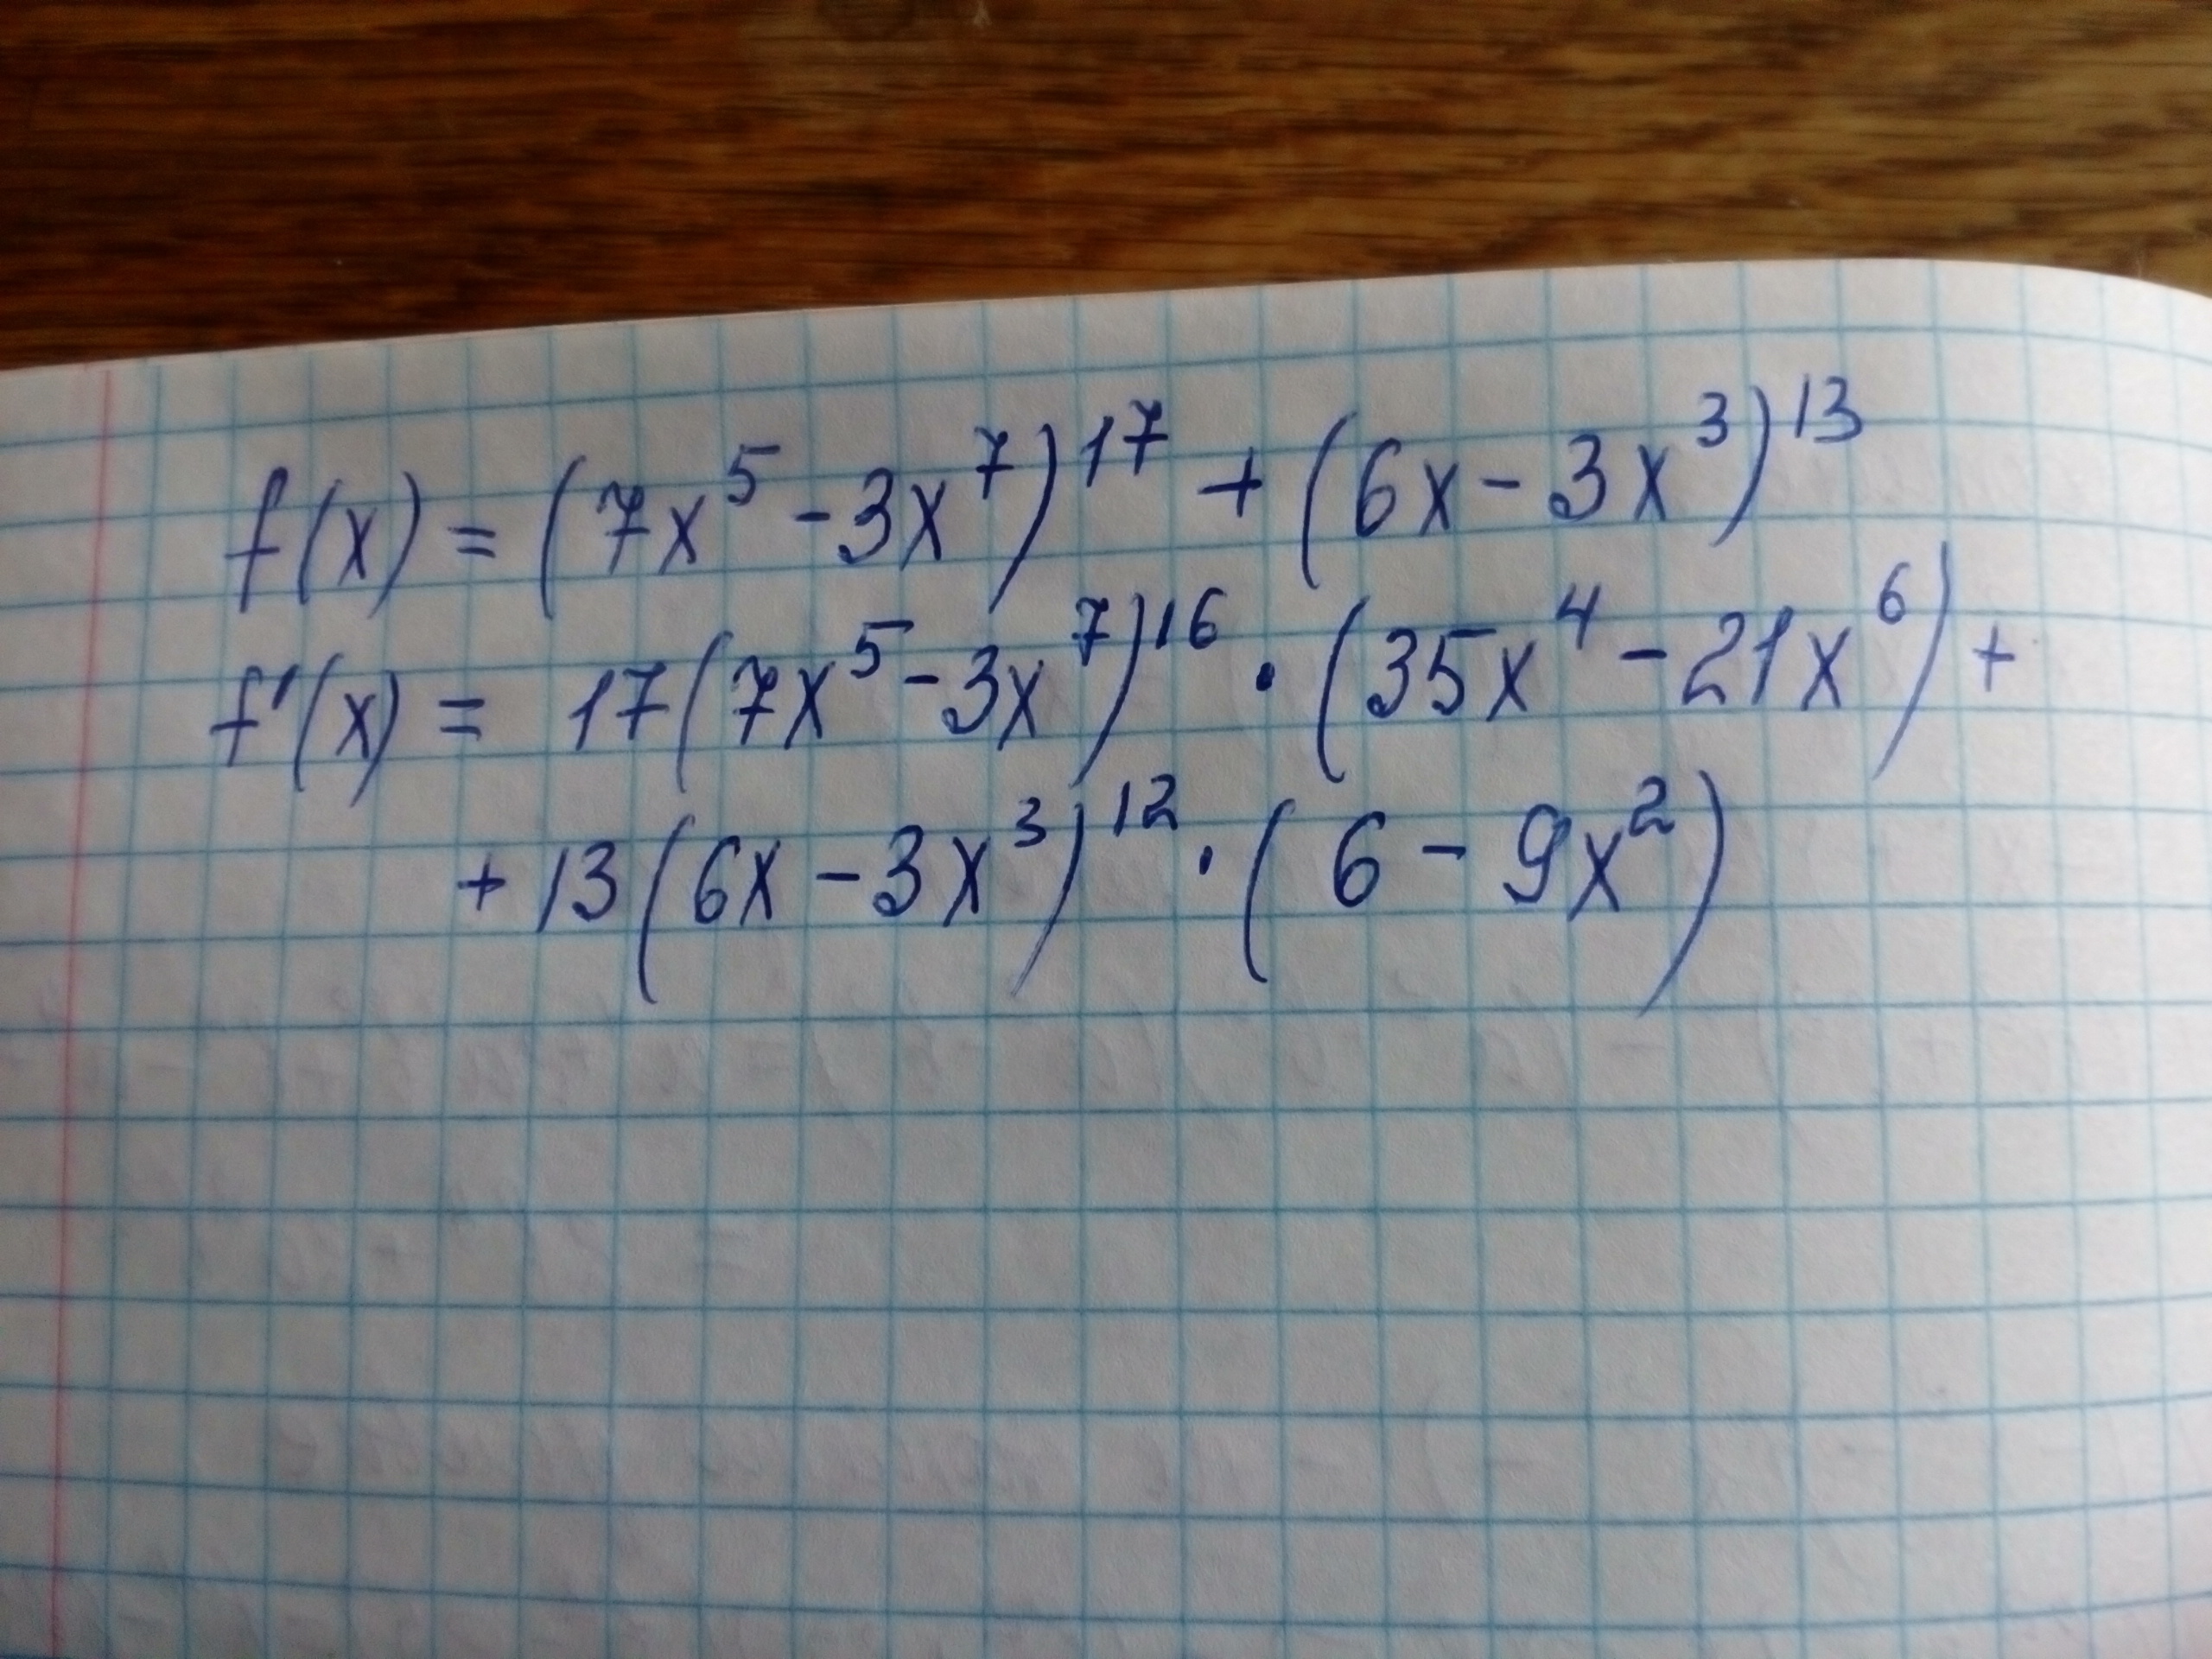 f(x) = (7x⁵ - 3x⁷)¹⁷ + (6x - 3x³)¹³
f'(x) = 17(7x⁵ - 3x⁷)¹⁶ · (35x⁴ - 21x⁶) +
+ 13(6x - 3x³)¹² · (6 - 9x²)